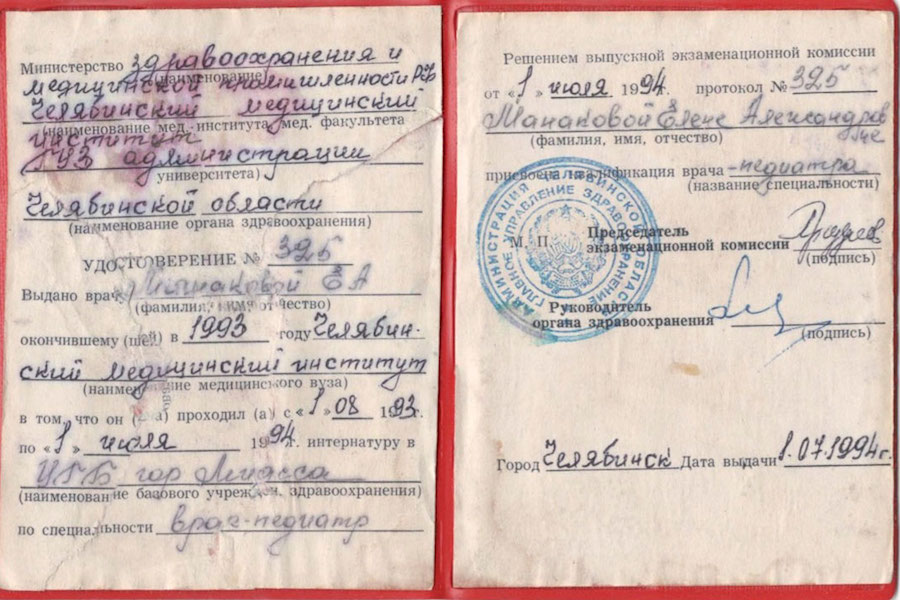 Министерство здравоохранения и
(наименование)
медицинской промышленности РФ
Челябинский медицинский
(наименование мед. института мед. факультета
институт
ГУЗ администрации
университета)
Челябинской области
(наименование органа здравоохранения)
УДОСТОВЕРЕНИЕ № 325
Выдано врачу Манаковой ЕА
(фамилия, имя отчество)
окончившему (шей) в 1993 году Челябин-
ский медицинский институт
(наименование медицинского вуза)
в том, что он (она) проходил (а) с «1» 08 1993г.
по «1» июля 1994г. интернатуру в
ЦГБ гор Миасса
(наименование базового учрежд. здравоохранения)
по специальности врач-педиатр
Решением выпускной экзаменационной комиссии
от «1» июля 1994. протокол № 325
Манаковой Елене Александров
не
(фамилия, имя, отчество)
присвоена квалификация врача-педиатра
(название специальности)
АДМИНИСТРАЦИЯ ЧЕЛЯБИНСКОЙ ОБЛАСТИ
ГЛАВНОЕ УПРАВЛЕНИЕ ЗДРАВООХРАНЕНИЯ
М. П.
Председатель
экзаменационной комиссии
(подпись)
Руководитель
органа здравоохранения
(подпись)
Город Челябинск Дата выдачи 1.07.1994г.